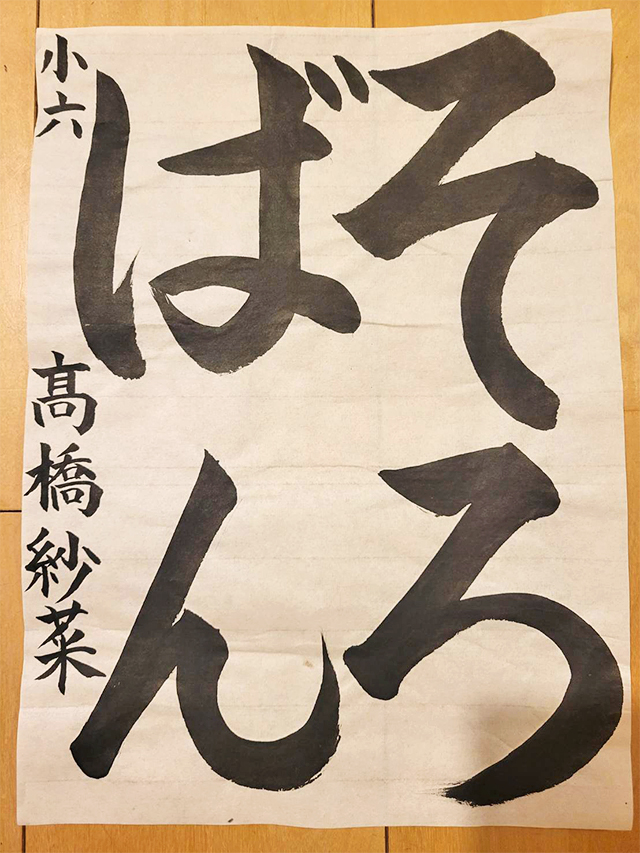 そろ
ばん
小六 髙橋紗菜